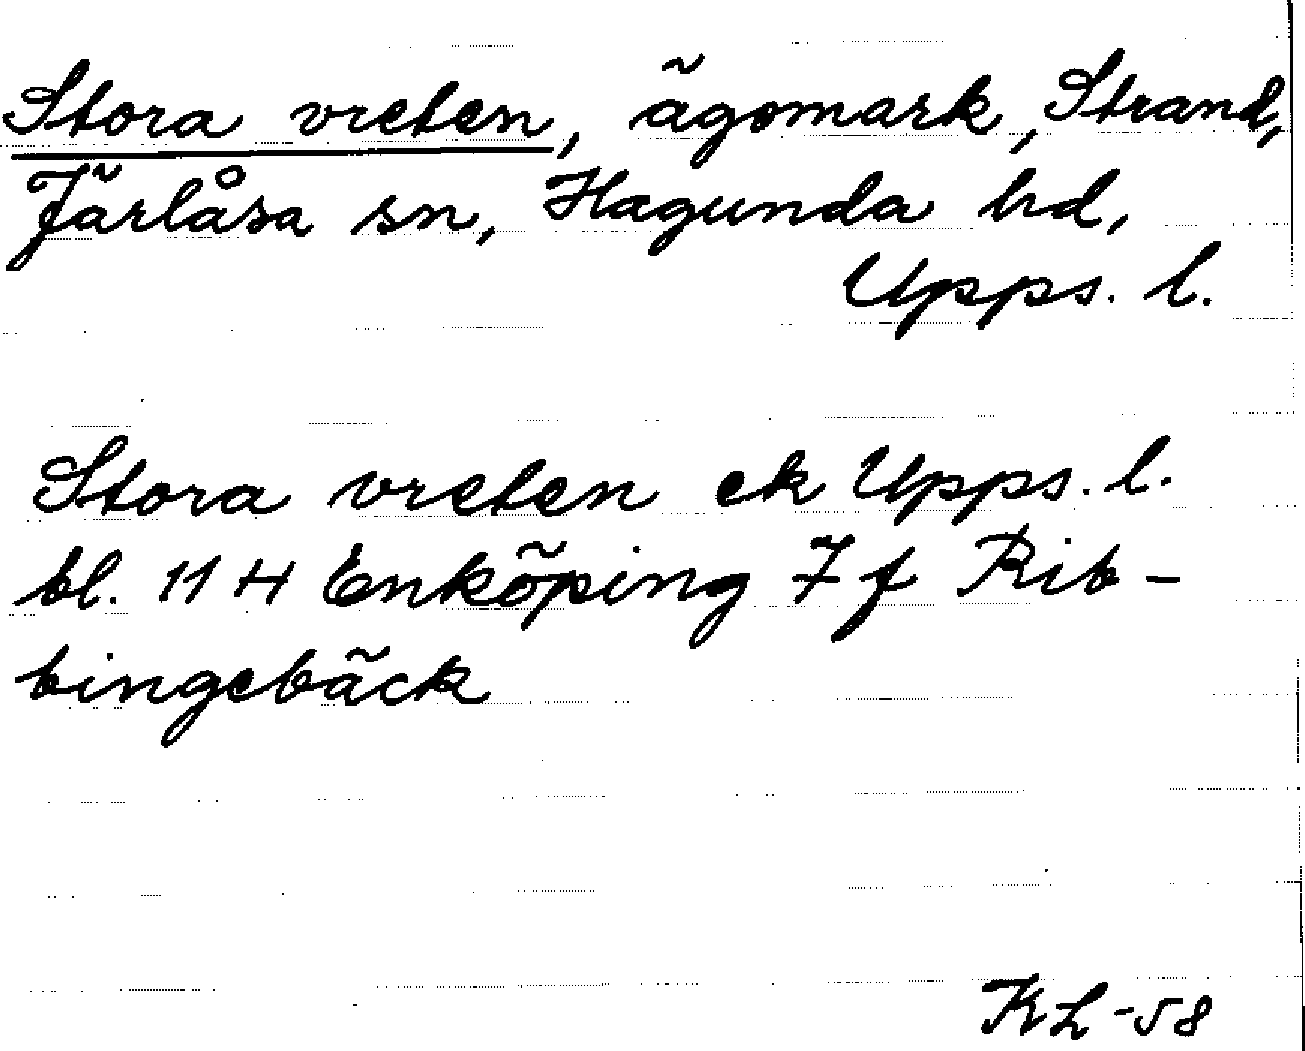 Stora vreten, ägomark, Strand,
Järlåsa sn, Hagunda hd,
Upps. l.
Stora vreten ek Upps. l.
bl. 11 H Enköping 7 f Rib-
bingebäck
KL-58